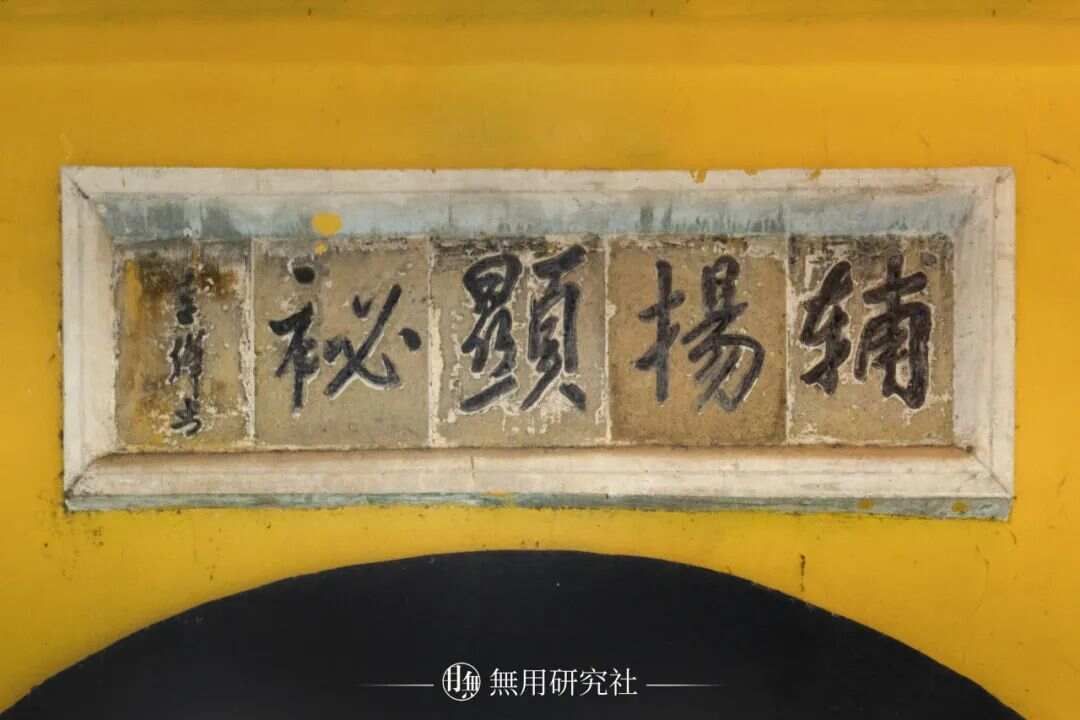 辅揚顯祕
無用研究社